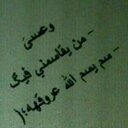 وعسى
- من يقاسمني فيگ
- سم يسم الله عروقهه ؛(